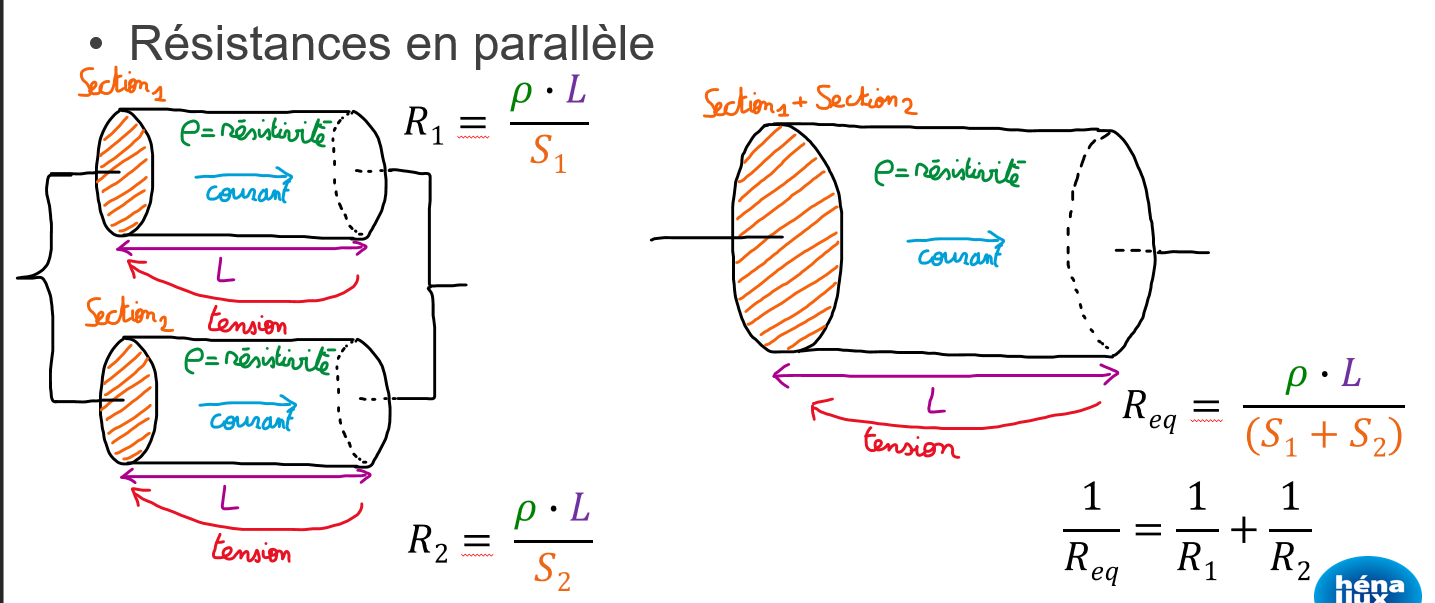 • Résistances en parallèle
Section₁
ρ = résistivité
courant
L
tension
R₁ = ρ · L / S₁
Section₂
ρ = résistivité
courant
L
tension
R₂ = ρ · L / S₂
Section₁ + Section₂
ρ = résistivité
courant
L
tension
R_eq = ρ · L / (S₁ + S₂)
1 / R_eq = 1 / R₁ + 1 / R₂
héna